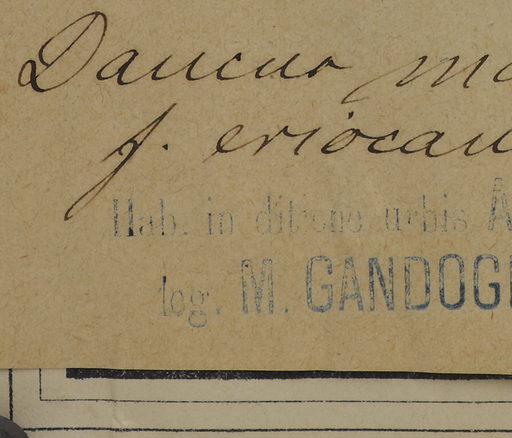 Daucus ma
f. eriocau
Hab. in ditione urbis A
log. M. GANDOG